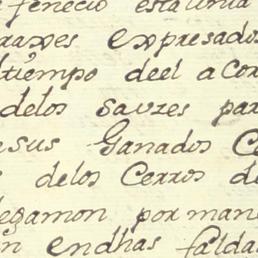 fenecio esta linia
raxes expresados
tiempo deel acor
delos sauzes par
sus Ganados C
delos Cerros de
legamon por mane
en endhas falda